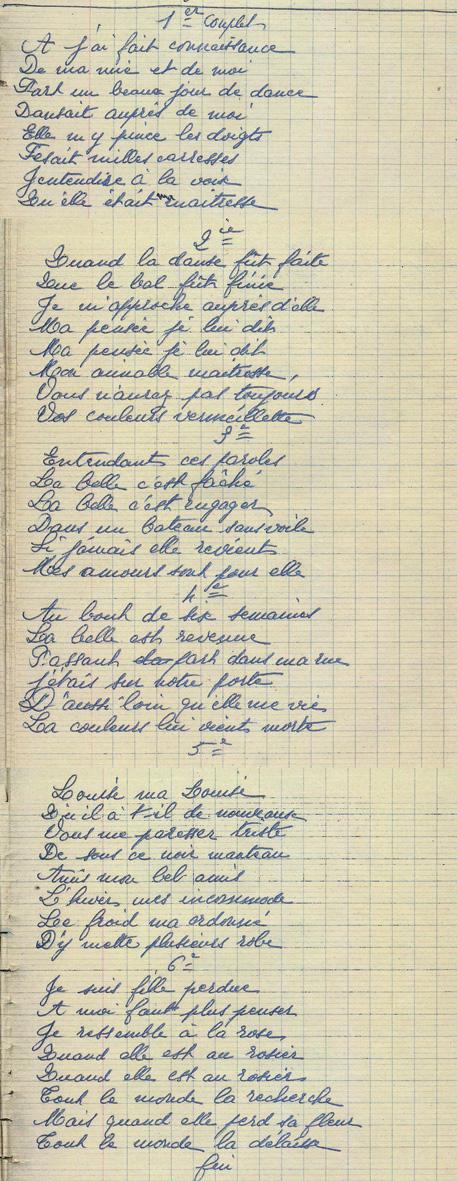 1er Couplet
A j'ai fait connaissance
De ma mie et de moi
Part un beau jour de dance
Dansait auprès de moi
Elle m'y pince les doigts
Fesait milles carresses
J'entendise à la voix
Qu'elle était maitresse
2ie
Quand la danse fût faite
Que le bal fût finie
Je m'approche auprès d'elle
Ma pensée je lui dit
Ma pensée je lui dit
Mon aimable maitresse,
Vous n'aurez pas toujours
Vos couleurs vermeillette
3e
Entendant ces paroles
La belle c'est fâché
La belle c'est engager
Dans un bateau sans voile
Si jamais elle revient
Mes amours sont pour elle
4e
Au bout de six semaines
La belle est revenue
Passant part dans ma rue
j'étais sur notre porte
D'aussi loin qu'elle me vie
La couleurs lui vient morte
5e
Louise ma Louise
Qu'il à t-il de nouveaux
Vous me paresser triste
De sous ce noir manteau
Amis mon bel amis
L'hiver mes incommode
Le froid ma ordonné
D'y mette plusieurs robe
6e
Je suis fille perdue
A moi faut plus penser
Je ressemble à la rose
Quand elle est au rosier
Quand elle est au rosier
Tout le monde la recherche
Mais quand elle perd sa fleur
Tout le monde la délaisse
fin